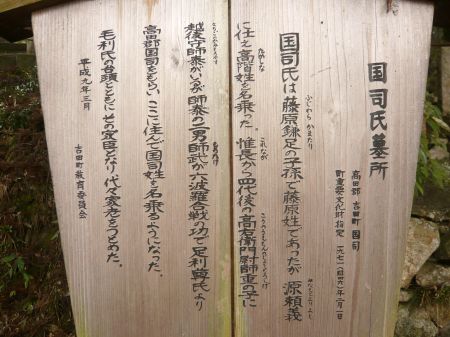 国司氏墓所
高田郡 吉田町 国司
町重要文化財指定
国司氏は藤原鎌足の子孫で藤原姓であったが 源頼義
ふじわら かまたり
みなもとよりよし
に仕え高階姓を名乗った。惟長から四代後の高右衛門尉師重の子に
たかしな
これなが
越後守師泰がいるが 師泰の二男師武が六波羅合戦の功で足利尊氏より
高田郡国司をもらい、ここに住んで国司姓を名乗るようになった。
毛利氏の吉頭とともにその家臣となり、代々家老をつとめた。
平成九年三月
吉田町教育委員会